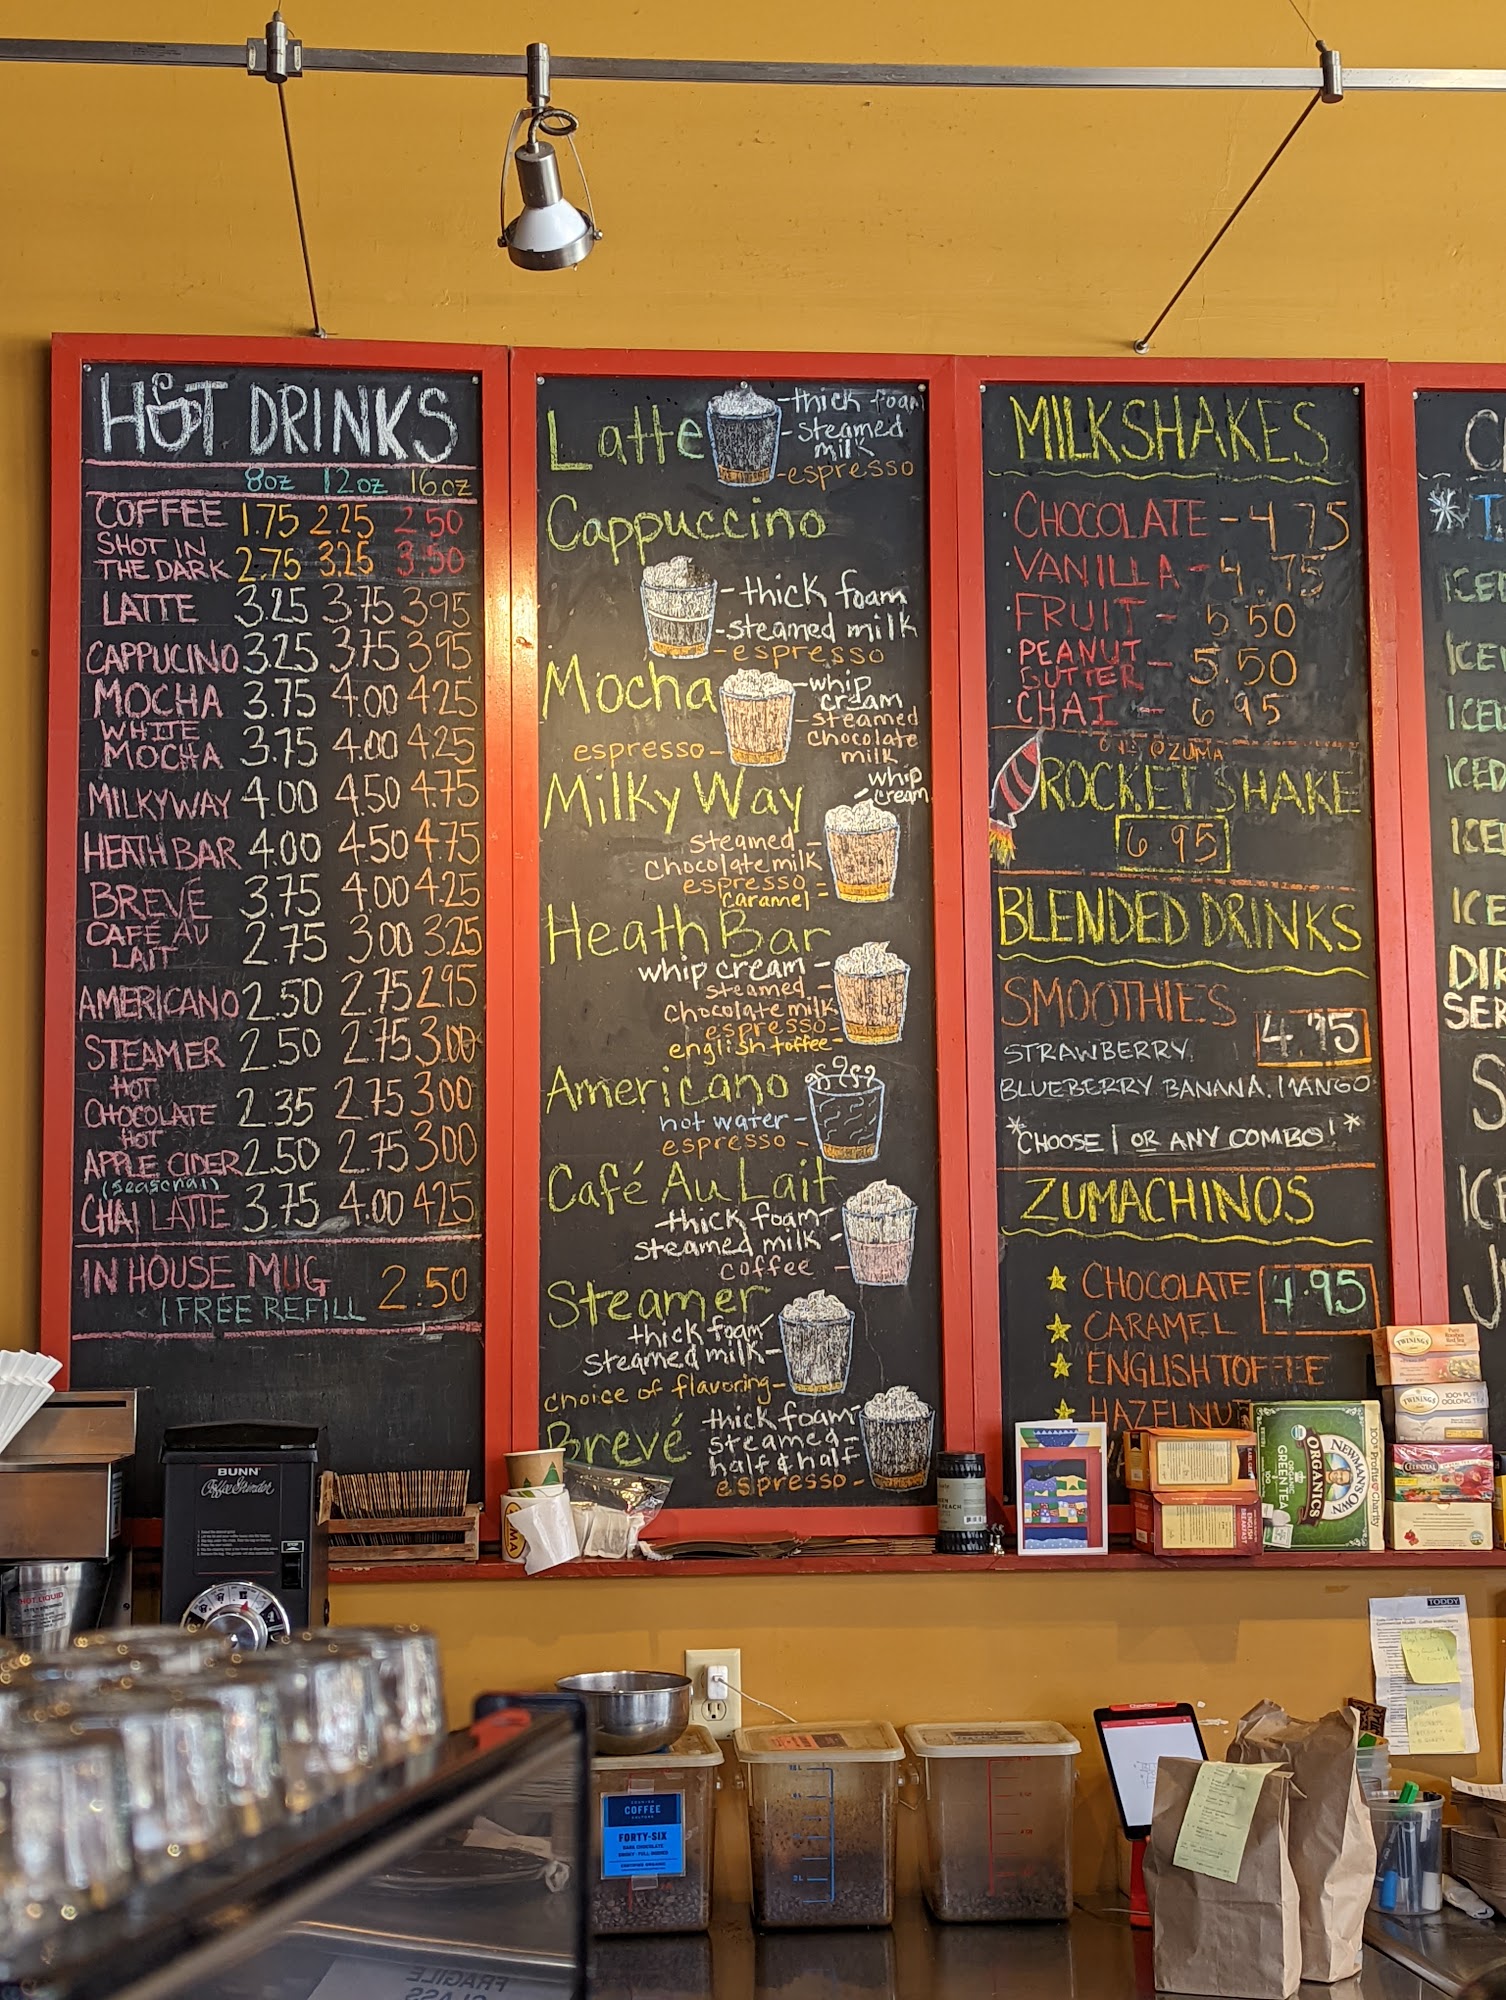 HOT DRINKS
8oz 12oz 16oz
COFFEE 1.75 2.25 2.50
SHOT IN
THE DARK 2.75 3.25 3.50
LATTE 3.25 3.75 3.95
CAPPUCINO 3.25 3.75 3.95
MOCHA 3.75 4.00 4.25
WHITE
MOCHA 3.75 4.00 4.25
MILKYWAY 4.00 4.50 4.75
HEATH BAR 4.00 4.50 4.75
BREVÉ 3.75 4.00 4.25
CAFÉ AU
LAIT 2.75 3.00 3.25
AMERICANO 2.50 2.75 2.95
STEAMER 2.50 2.75 3.00
HOT
CHOCOLATE 2.35 2.75 3.00
HOT
APPLE CIDER 2.50 2.75 3.00
(seasonal)
CHAI LATTE 3.75 4.00 4.25
IN HOUSE MUG 2.50
1 FREE REFILL
Latte
-thick foam
-steamed
milk
-espresso
Cappuccino
-thick foam
-steamed milk
-espresso
Mocha
-whip
cream
-steamed
chocolate
milk
espresso-
Milky Way
whip
cream
steamed-
chocolate milk
espresso-
caramel-
Heath Bar
whip cream-
steamed-
chocolate milk
espresso-
english toffee-
Americano
hot water-
espresso-
Café Au Lait
thick foam-
steamed milk-
coffee-
Steamer
thick foam-
steamed milk-
choice of flavoring-
Brevé
thick foam-
steamed-
half & half
espresso-
MILKSHAKES
·CHOCOLATE - 4.75
·VANILLA - 4.75
·FRUIT - 5.50
·PEANUT
BUTTER - 5.50
·CHAI - 6.95
ZUMA
ROCKET SHAKE
6.95
BLENDED DRINKS
SMOOTHIES 4.75
STRAWBERRY,
BLUEBERRY, BANANA, MANGO
*CHOOSE 1 OR ANY COMBO!*
ZUMACHINOS
CHOCOLATE 4.95
CARAMEL
ENGLISH TOFFEE
HAZELNU
ICE
DIR
SER
BUNN
Coffee Grinder
HOT LIQUID
UMA
PEACH
EARL GREY
ENGLISH BREAKFAST
NEWMAN'S OWN
ORGANICS
ORGANIC
GREEN TEA
100% Profits to Charity
TWININGS
TWININGS
100% PURE
OOLONG TEA
CELESTIAL
TODDY
COFFEE
FORTY-SIX
DARK CHOCOLATE
SMOKY · FULL BODIED
CERTIFIED ORGANIC
FRAGILE
GLASS